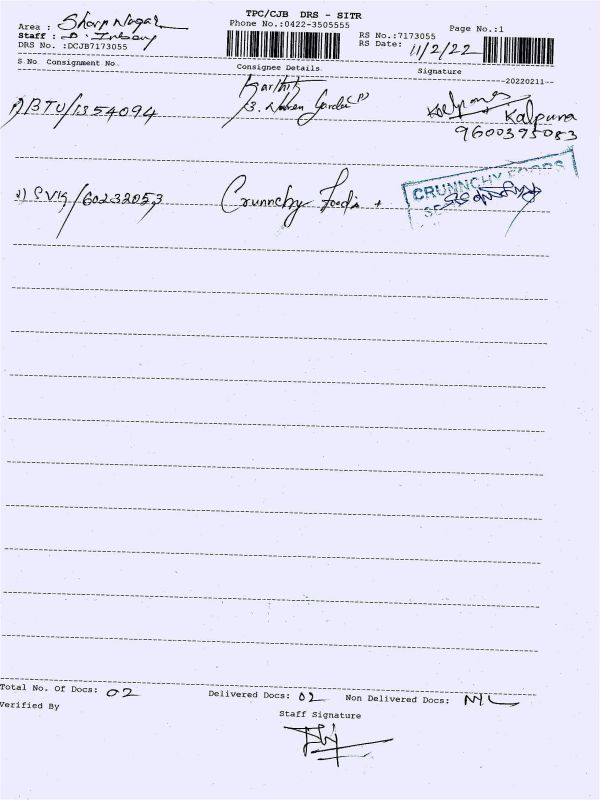 TPC/CJB DRS - SITR
Area : Sharp Nagar
Phone No.:0422-3505555
Page No.:1
Staff : D. Inbaraj
RS No.:7173055
DRS No. :DCJB7173055
RS Date: 11/2/22
S.No Consignment No
Consignee Details
Signature
--20220211--
Karthik
1) BTU/1354094
3. Garden
Kalpana
9600395083
2) SVG/60232053
Crunnchy Foods
CRUNNCHY FOODS
Total No. Of Docs: 02
Delivered Docs: 02
Non Delivered Docs: NIL
Verified By
Staff Signature